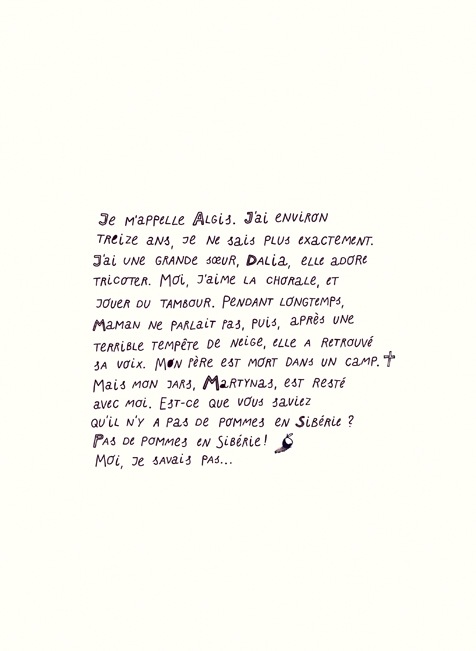 Je m'appelle Algis. J'ai environ
treize ans, je ne sais plus exactement.
J'ai une grande sœur, Dalia, elle adore
tricoter. Moi, j'aime la chorale, et
jouer du tambour. Pendant longtemps,
Maman ne parlait pas, puis, après une
terrible tempête de neige, elle a retrouvé
sa voix. Mon père est mort dans un camp.
Mais mon jars, Martynas, est resté
avec moi. Est-ce que vous saviez
qu'il n'y a pas de pommes en Sibérie ?
Pas de pommes en Sibérie !
Moi, je savais pas...